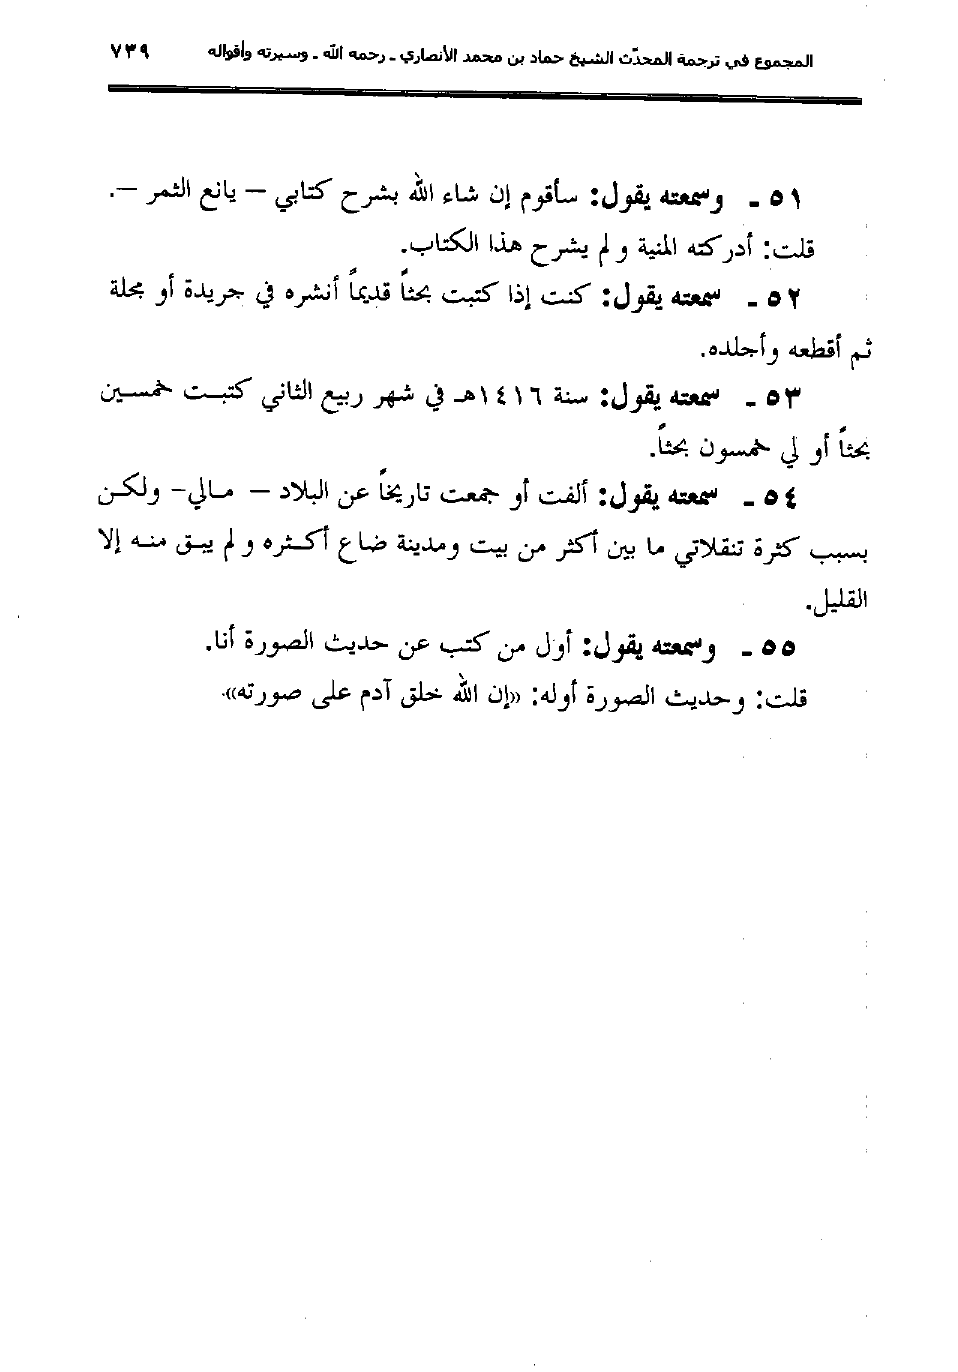 المجموع في ترجمة المحدّث الشيخ حماد بن محمد الأنصاري ـ رحمه الله ـ وسيرته وأقواله ٧٣٩
٥١ ـ وسمعته يقول: سأقوم إن شاء الله بشرح كتابي – يانع الثمر –.
قلت: أدركته المنية و لم يشرح هذا الكتاب.
٥٢ ـ سمعته يقول: كنت إذا كتبت بحثاً قديماً أنشره في جريدة أو مجلة
ثم أقطعه وأجلده.
٥٣ ـ سمعته يقول: سنة ١٤١٦هـ في شهر ربيع الثاني كتبت خمسين
بحثاً أو لي خمسون بحثاً.
٥٤ ـ سمعته يقول: ألفت أو جمعت تاريخاً عن البلاد – مالي- ولكن
بسبب كثرة تنقلاتي ما بين أكثر من بيت ومدينة ضاع أكثره و لم يبق منه إلا
القليل.
٥٥ ـ وسمعته يقول: أول من كتب عن حديث الصورة أنا.
قلت: وحديث الصورة أوله: «إن الله خلق آدم على صورته».